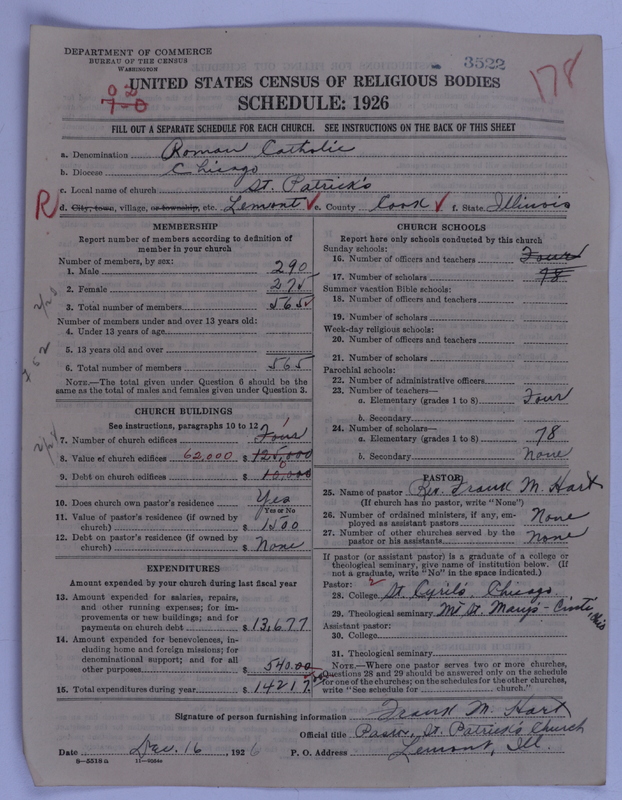 DEPARTMENT OF COMMERCE
BUREAU OF THE CENSUS
WASHINGTON
3522
178
UNITED STATES CENSUS OF RELIGIOUS BODIES
SCHEDULE: 1926
FILL OUT A SEPARATE SCHEDULE FOR EACH CHURCH. SEE INSTRUCTIONS ON THE BACK OF THIS SHEET
a. Denomination Roman Catholic
b. Diocese Chicago
c. Local name of church St. Patrick's
R d. City, town, village, or township, etc. Lemont e. County Cook f. State Illinois
MEMBERSHIP
Report number of members according to definition of
member in your church
Number of members, by sex:
1. Male 290
2. Female 275
3. Total number of members 565
Number of members under and over 13 years old:
4. Under 13 years of age
5. 13 years old and over
6. Total number of members 565
NOTE.—The total given under Question 6 should be the
same as the total of males and females given under Question 3.
CHURCH BUILDINGS
See instructions, paragraphs 10 to 12
7. Number of church edifices Four 1
8. Value of church edifices 62,000 $ 125,000
9. Debt on church edifices $ 10,000 0
10. Does church own pastor's residence Yes
Yes or No
11. Value of pastor's residence (if owned by
church) $ 1500
12. Debt on pastor's residence (if owned by
church) $ None
EXPENDITURES
Amount expended by your church during last fiscal year
13. Amount expended for salaries, repairs,
and other running expenses; for im-
provements or new buildings; and for
payments on church debt $ 13,677
14. Amount expended for benevolences, in-
cluding home and foreign missions; for
denominational support; and for all
other purposes $ 540.00
15. Total expenditures during year $ 14217
CHURCH SCHOOLS
Report here only schools conducted by this church
Sunday schools:
16. Number of officers and teachers Four
17. Number of scholars 98
Summer vacation Bible schools:
18. Number of officers and teachers
19. Number of scholars
Week-day religious schools:
20. Number of officers and teachers
21. Number of scholars
Parochial schools:
22. Number of administrative officers
23. Number of teachers—
a. Elementary (grades 1 to 8) Four
b. Secondary
24. Number of scholars—
a. Elementary (grades 1 to 8) 78
b. Secondary None
PASTOR
25. Name of pastor Rev. Frank M. Hart
(If church has no pastor, write "None")
26. Number of ordained ministers, if any, em-
ployed as assistant pastors None
27. Number of other churches served by the
pastor or his assistants None
If pastor (or assistant pastor) is a graduate of a college or
theological seminary, give name of institution below. (If
not a graduate, write "No" in the space indicated.)
Pastor: 2
28. College St. Cyril's, Chicago
29. Theological seminary Mt. St. Mary's - Cinti, Ohio
Assistant pastor:
30. College
31. Theological seminary
NOTE.—Where one pastor serves two or more churches,
Questions 28 and 29 should be answered only on the schedule
for one of the churches; on the schedules for the other churches,
write "See schedule for church."
Signature of person furnishing information Frank M. Hart
Official title Pastor, St. Patrick's Church
Date Dec. 16, 1926 P. O. Address Lemont, Ill.
8—5518a 11—9364a